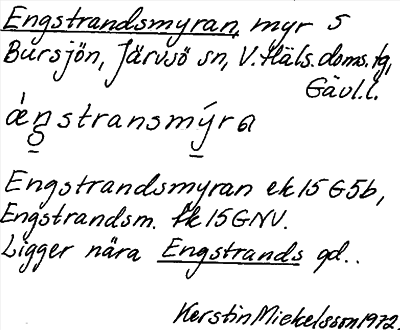 Engstrandsmyran, myr S
Bursjön, Järvsö sn, V. Häls. doms. tg,
Gävl. l.
ængstransmýra
Engstrandsmyran ek 15 G5b,
Engstrandsm. fk 15 GNV.
Ligger nära Engstrands gd..
Kerstin Mickelsson 1972.